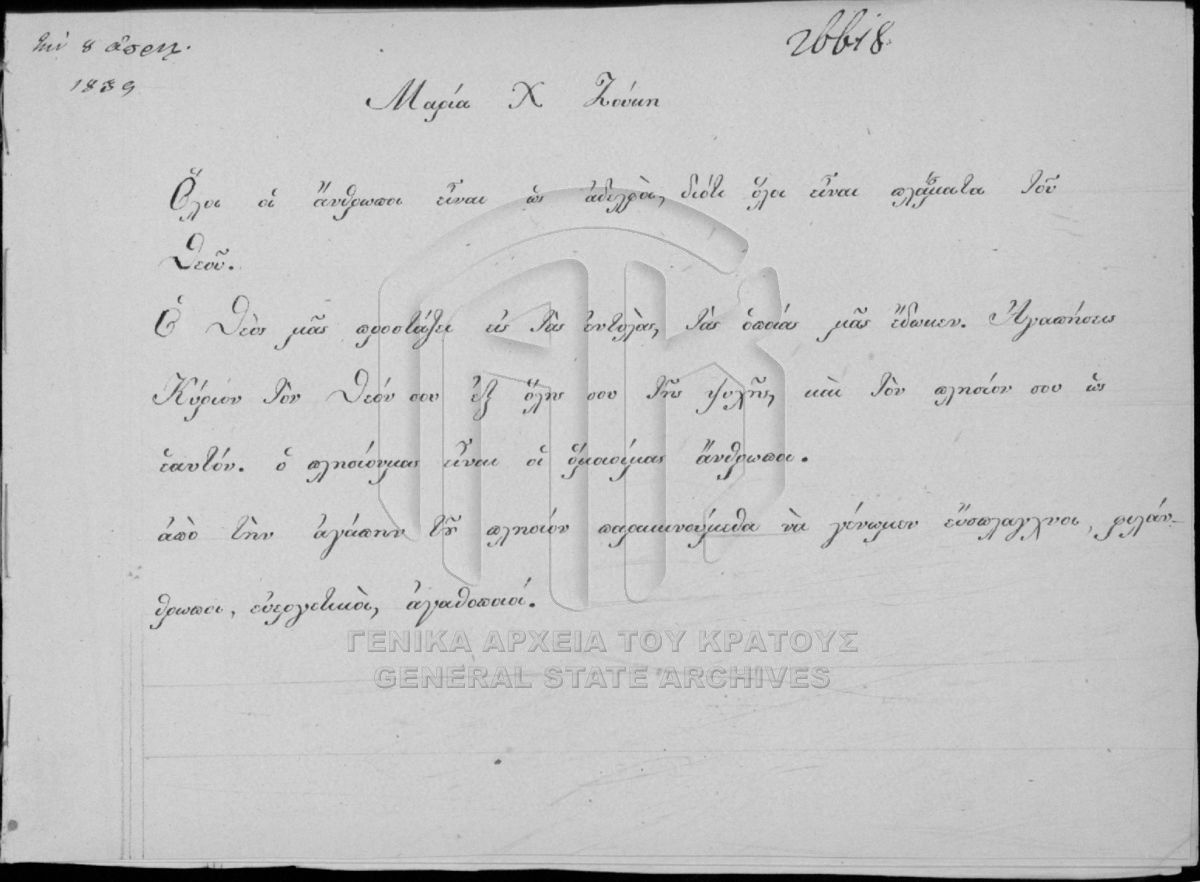 τὴν 8 ἀπριλ.
1839
26618
Μαρία Χ Ζούκη
Ὅλοι οἱ ἄνθρωποι εἶναι ὡς ἀδελφοὶ, διότι ὅλοι εἶναι πλάσματα τοῦ
Θεοῦ.
Ὁ Θεὸς μᾶς προστάζει εἰς τὰς ἐντολὰς, τὰς ὁποίας μᾶς ἔδωκεν. Ἀγαπήσεις
Κύριον τὸν Θεόν σου ἐξ ὅλης σου τῆς ψυχῆς, καὶ τὸν πλησίον σου ὡς
ἑαυτόν. ὁ πλησίονμας εἶναι οἱ ὅμοιοίμας ἄνθρωποι.
ἀπὸ τὴν ἀγάπην τοῦ πλησίον παρακινούμεθα νὰ γένωμεν εὔσπλαγχνοι, φιλάν-
θρωποι, εὐεργετικοὶ, ἀγαθοποιοί.
ΓΕΝΙΚΑ ΑΡΧΕΙΑ ΤΟΥ ΚΡΑΤΟΥΣ
GENERAL STATE ARCHIVES